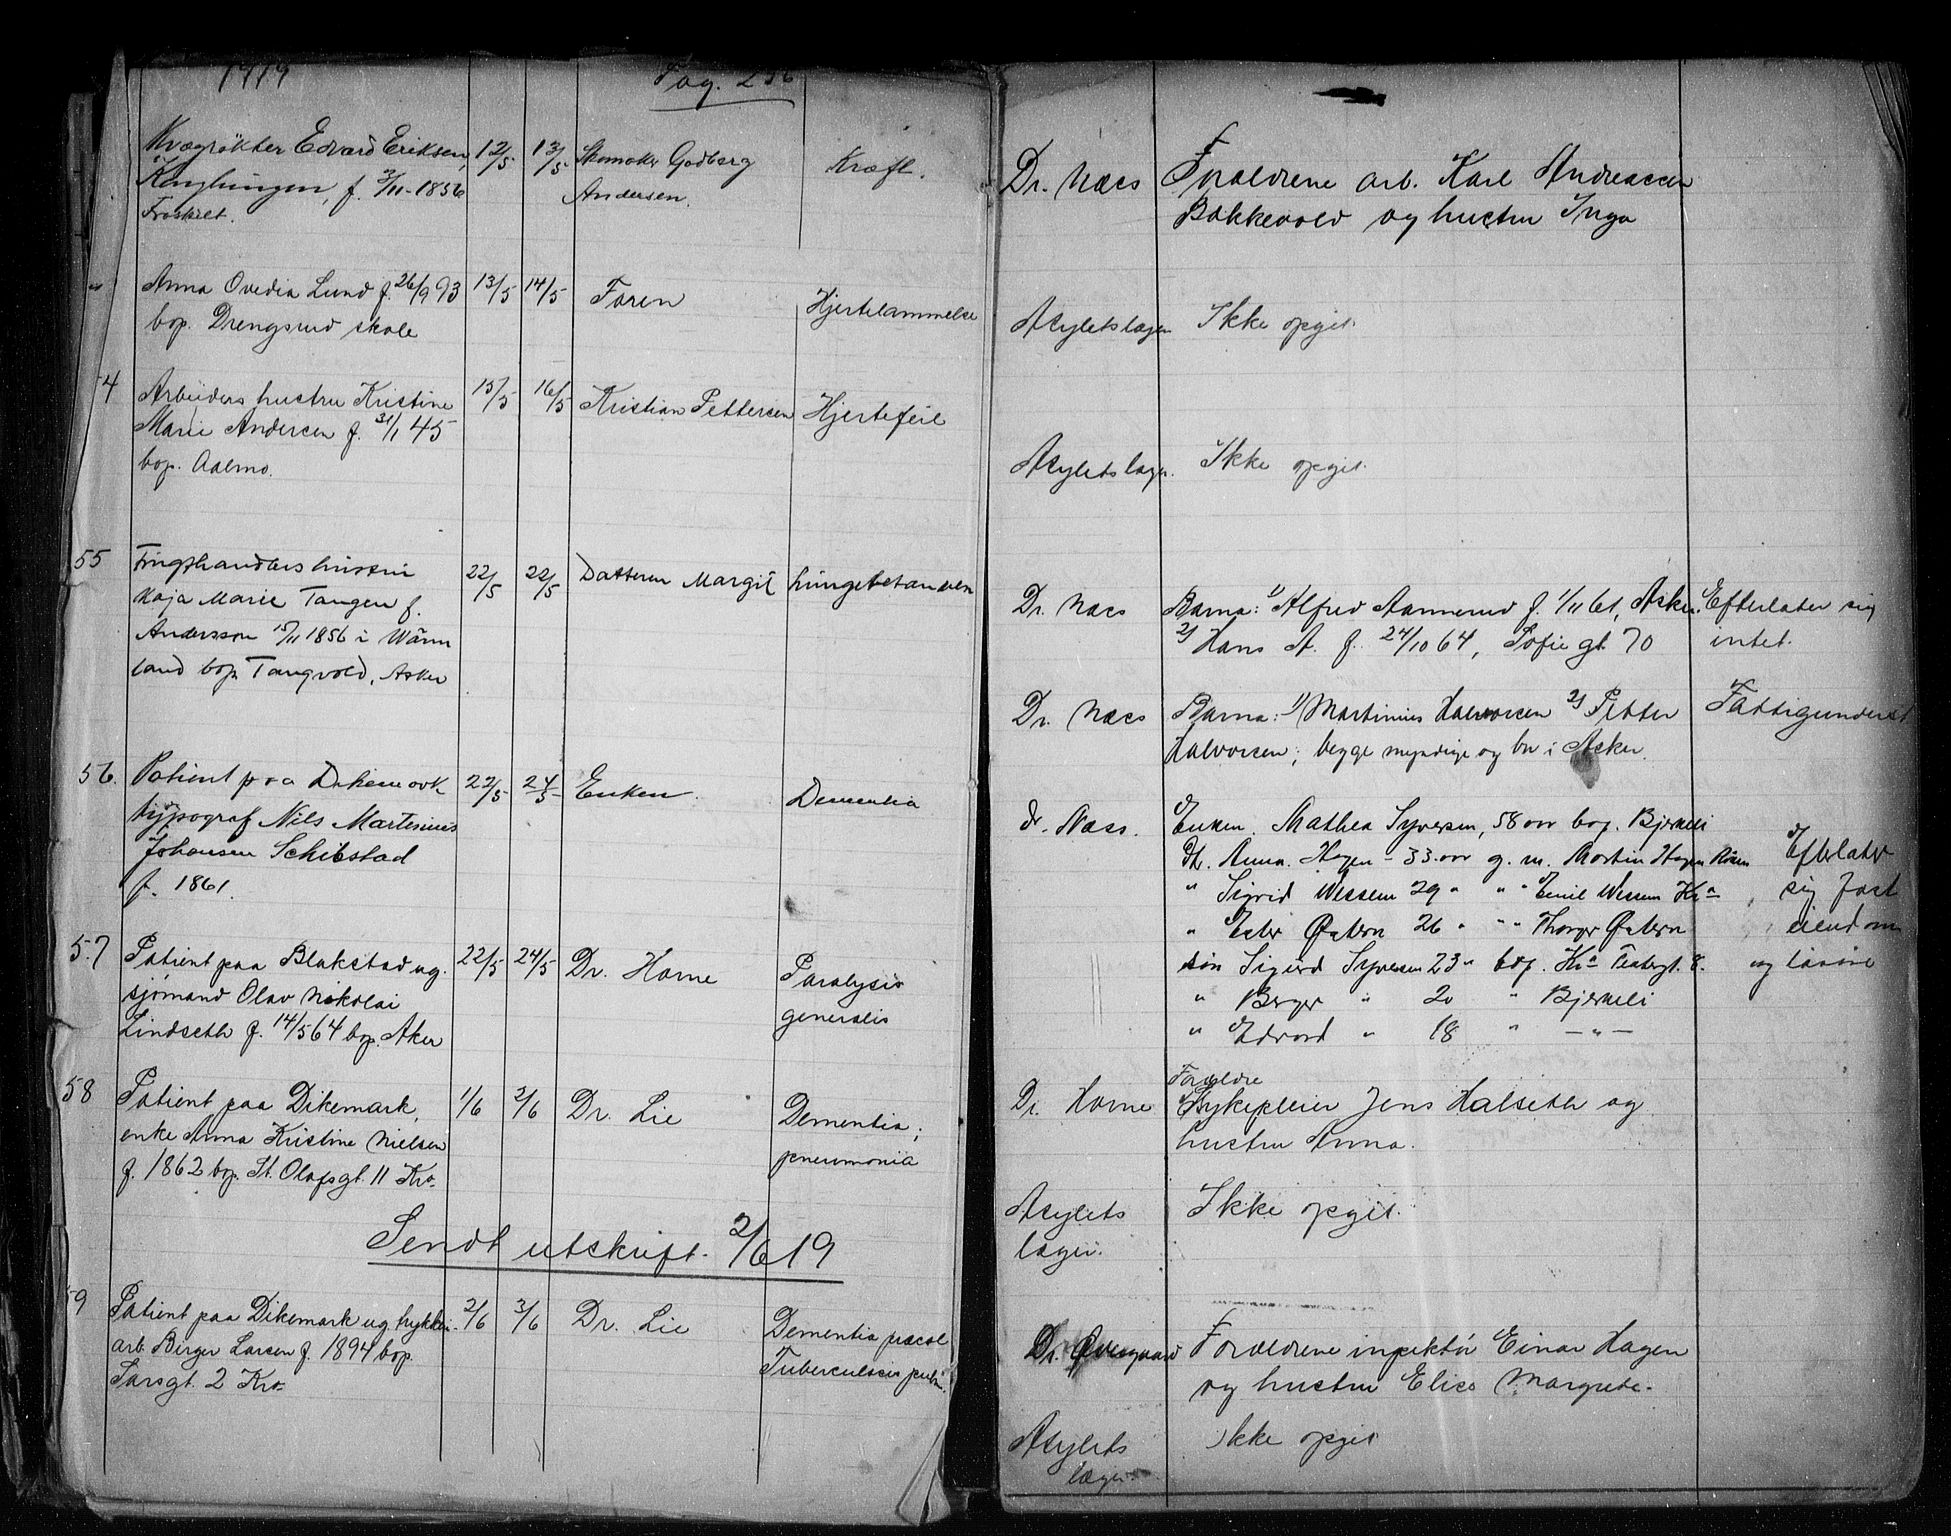 1919
Pag. 256
Kvægrökter Edvard Eriksen, 12/5 13/5 Skomaker Godberg Kræft.
f. 2/11-1856 Andersen.
Anna Ovedia Lund f. 26/9 93 13/5 14/5 Faren Hjertelammelse
bop. Drengsrud skole
4 Arbeiders hustru Kristine 15/5 16/5 Kristian Pettersen Hjertefeil
Marie Andersen f. 31/1 45
bop. Aalmo.
55 hustru 22/5 22/5 Datteren Margit Lungebetændelse
Kaja Marie Tangen f.
Andersson 15/11 1856 i Wärm
land bop. Tangvold, Asker
56. Patient paa Dikemark 22/5 24/5 Enken. Dementia
typograf Nils Martinius
Johansen Schibstad
f. 1861.
57 Patient paa Blakstad ug. 22/5 24/5 Dr. Horne Paralysis
sjømand Olav Nikolai generalis
Lindseth f. 14/5 64 bop. Aker
58 Patient paa Dikemark, 1/6 2/6 Dr. Lie Dementia;
enke Anna Kristine Nielsen pneumonia
f. 1862 bop. St. Olafsgt. 11 Kra.
Sendt utskrift. 2/6 19
59 Patient paa Dikemark ug. trykkeri- 2/6 3/6 Dr. Lie Dementia præcol
arb. Birger Larsen f. 1894 bop. Tuberculosis pulm.
Sarsgt. 2 Kra.
Dr. Næs Forældrene arb. Karl Andreassen
Bakkevold og hustru Inga
Asylets lægen Ikke opgit.
Asylets læge. Ikke opgit.
Dr. Næs Barna: 1) Alfred Aannerud f. 1/11 61, Asker. Efterlater sig
2) Hans A. f. 24/10 64, Sofie gt. 70 intet.
Dr. Næs Barna: 1) Martinius Halvorsen 2) Petter Fattigunderst
Halvorsen; begge myndige og bor i Asker.
dr. Næss. Enken. Mathea Syversen, 58 aar bop. Bjerkeli
Dt. Anna Hagen - 33 aar g. m. Martin Hagen Efterlater
" Sigrid Wessem 29 " " " Emil Wessem Kra sig fast
" Ester Østern 26 " " " Thorger Østern eiendom
søn Sigurd Syversen 23 " bop. Kra Teatergt. 8. og løsøre
" Berger " 20 " Bjerkeli
" Edvard " 18 " — " —
Forældre
Dr. Horne Sykepleier Jens Halseth og
hustru Anna.
Asylets Ikke opgit.
læge.
Dr. Øvergaard Forældrene inspektör Einar Hagen
og hustru Elise Margrete.
Asylets Ikke opgit
læge.